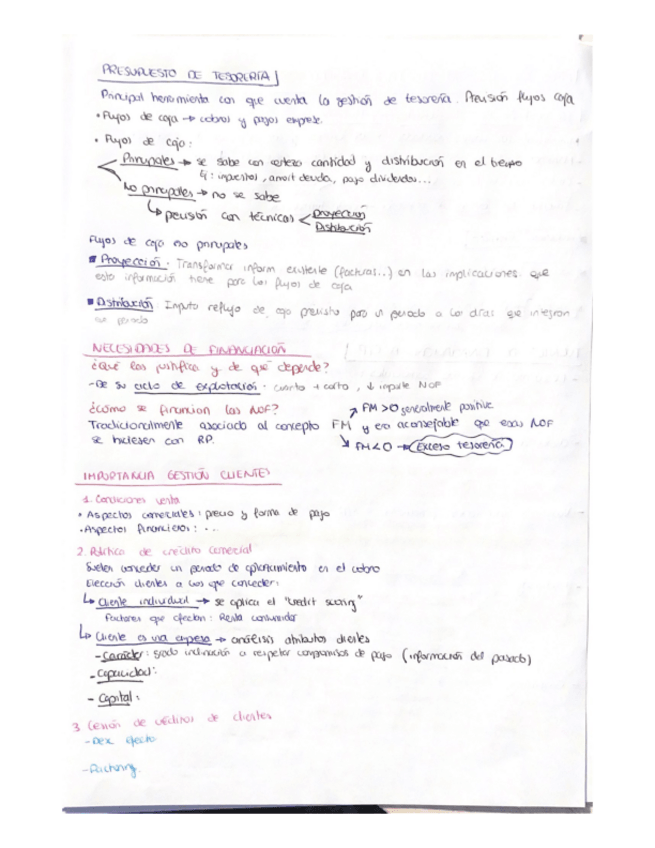 PRESUPUESTO DE TESORERÍA
Principal herramienta con que cuenta la gestión de tesorería. Previsión flujos caja
• Flujos de caja → cobros y pagos empresa
• Flujos de caja:
Principales → se sabe con certeza cantidad y distribución en el tiempo
Ej: impuestos, amort deuda, pago dividendos...
No principales → no se sabe
↳ previsión con técnicas < Proyección
Distribución
Flujos de caja no principales
▪ Proyección • Transformar inform existente (facturas...) en las implicaciones que
esta información tiene para los flujos de caja
▪ Distribución Imputa reflujo de caja previsto para un periodo a los días que integran
ese periodo
NECESIDADES DE FINANCIACIÓN
¿Qué las justifica y de qué depende?
- De su ciclo de explotación • cuanto + corto, ↓ importe NOF
¿Cómo se financian las NOF?
↗ FM>0 generalmente positivo
Tradicionalmente asociado al concepto FM y era aconsejable que esas NOF
se hiciesen con RP.
↘ FM<0 → Exceso tesorería
IMPORTANCIA GESTIÓN CLIENTES
1. Condiciones venta
• Aspectos comerciales: precio y forma de pago
• Aspectos financieros: ...
2. Política de crédito comercial
Suelen conceder un periodo de aplazamiento en el cobro
Elección clientes a los que conceder:
↳ Cliente individual → se aplica el "credit scoring"
Factores que afectan: Renta consumidor
↳ Cliente es una empresa → análisis atributos clientes
- Carácter: grado inclinación a respetar compromisos de pago (información del pasado)
- Capacidad:
- Capital:
3 Cesión de créditos de clientes
- efecto
- Factoring.